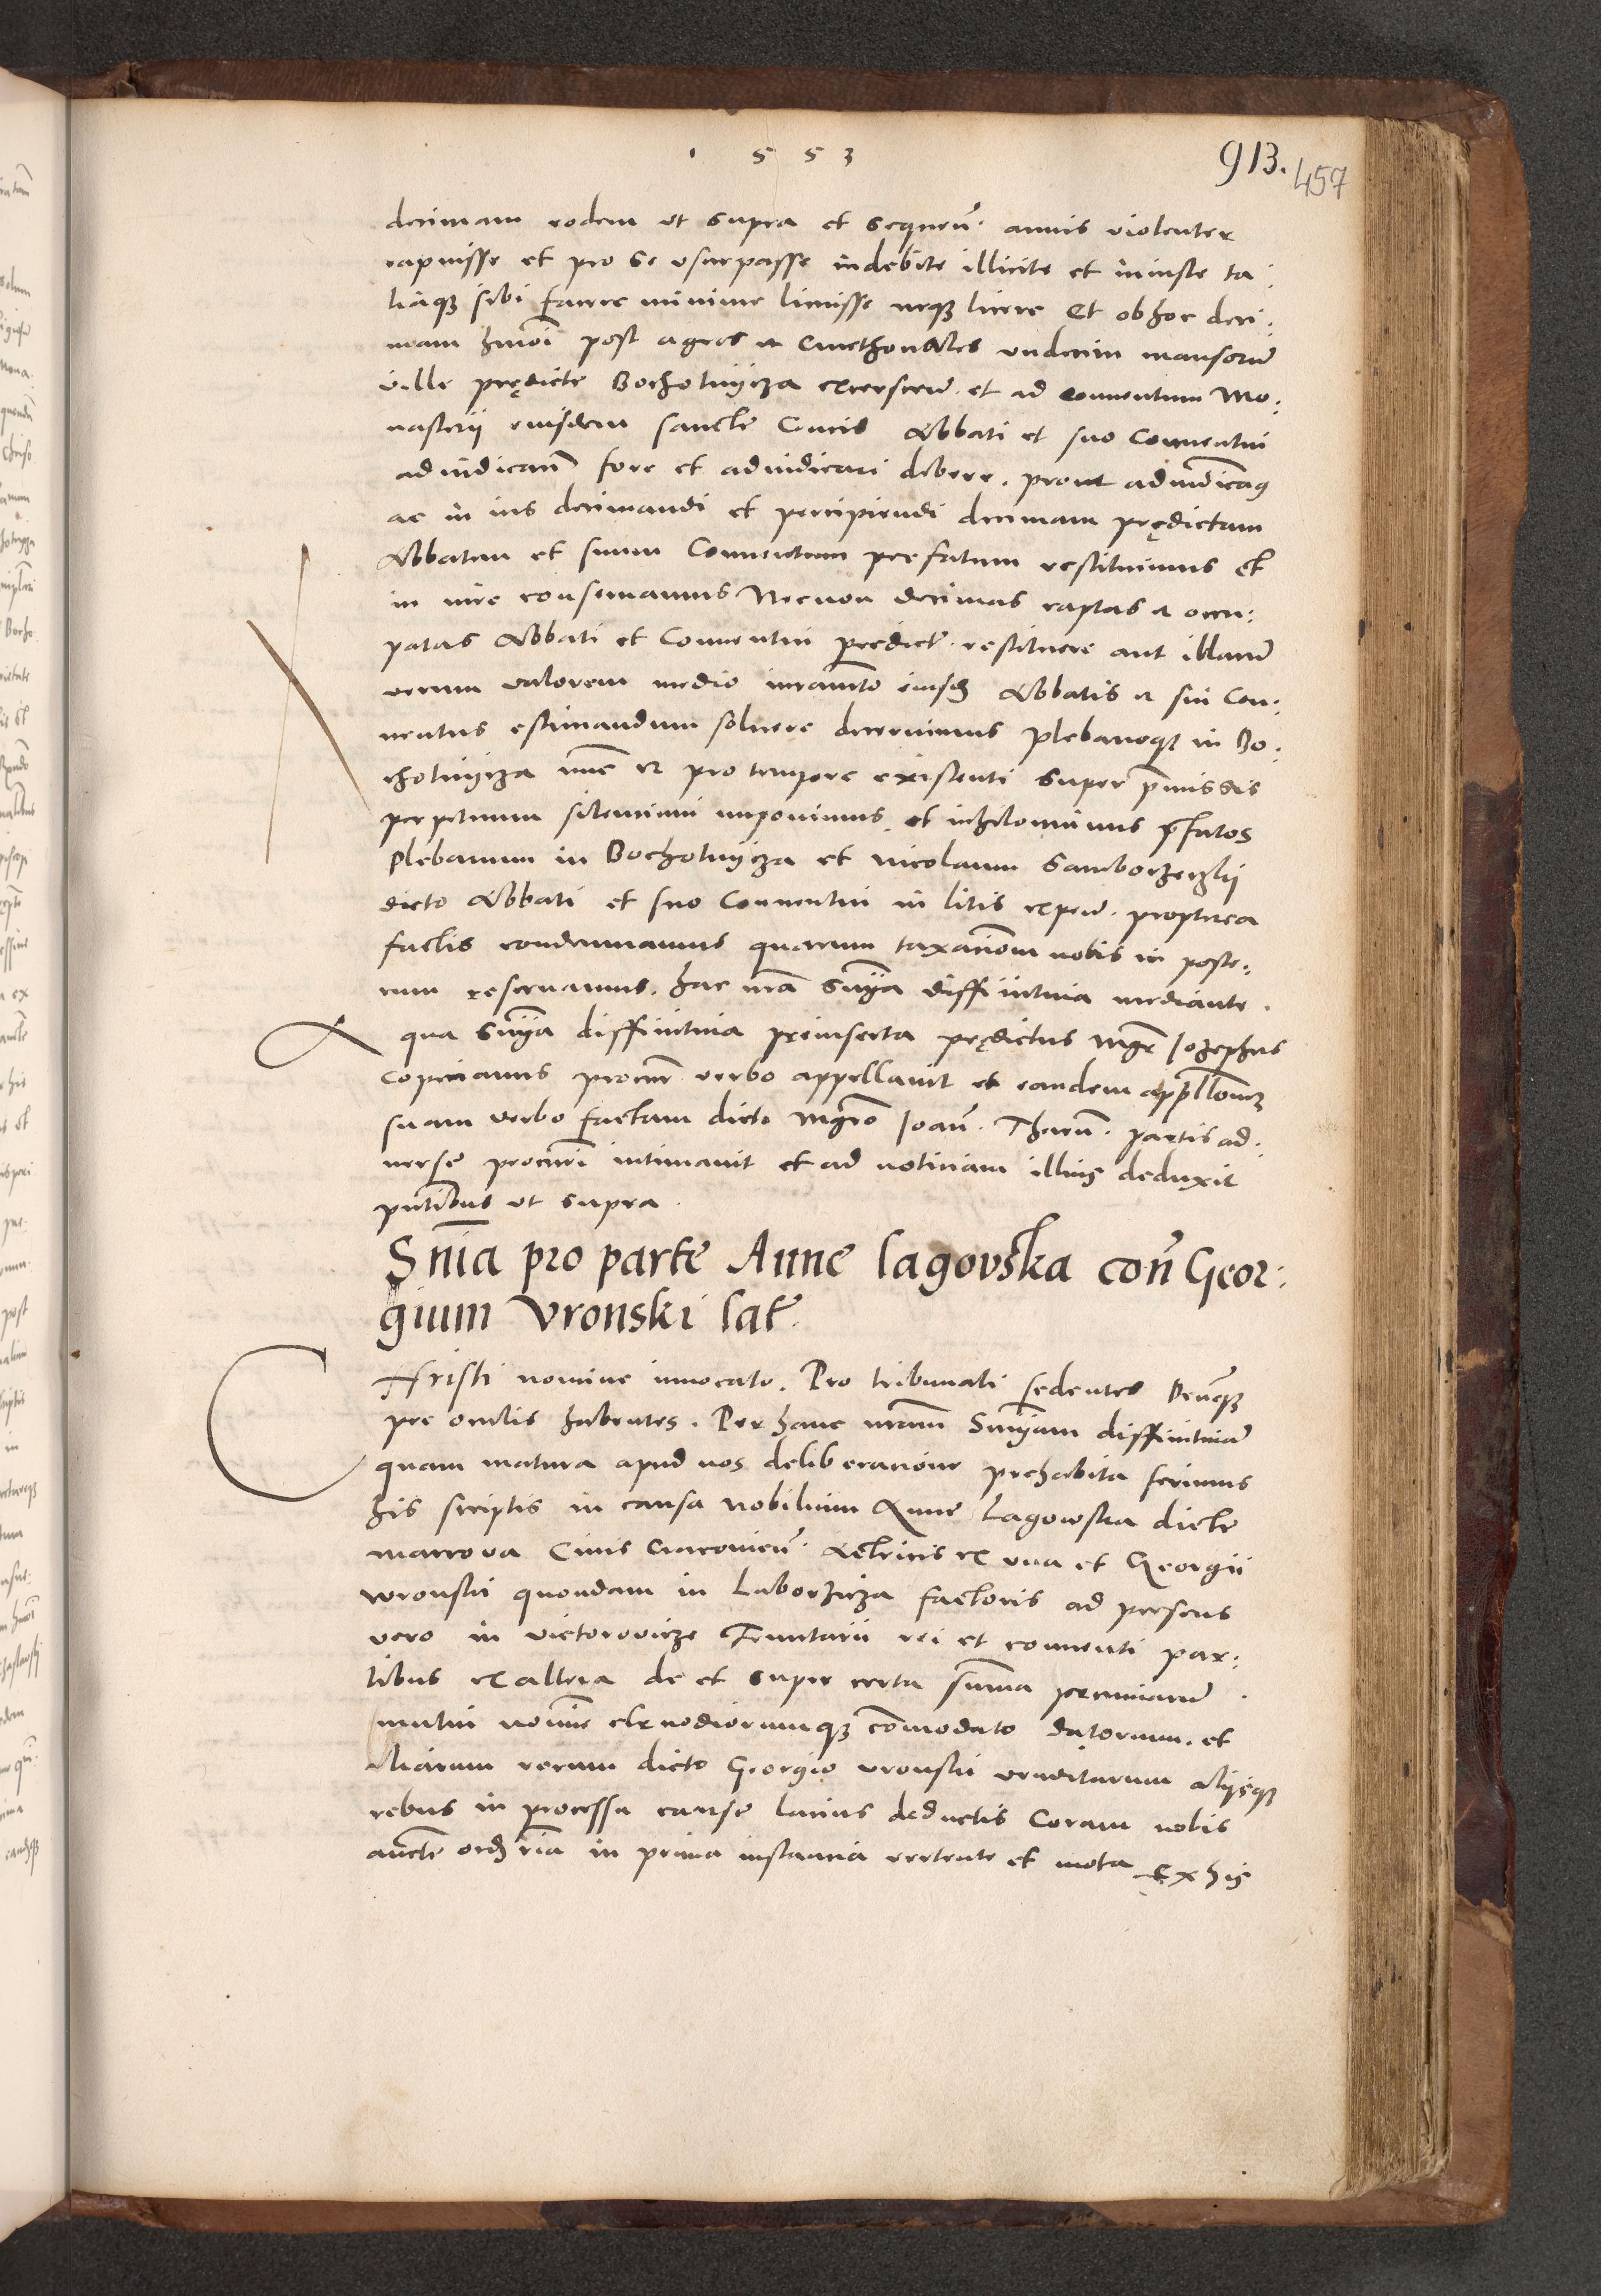 1553
913. 457
decimam eodem ut supra et sequen̄. annis violenter
rapuisse et pro se usurpasse indebite illicite et iniuste ta:
liaq3 sibi facere minime licuisse neq3 licere Et ob hoc deci:
mam hm̄oi post agros et cmethonales undecim mansorū
ville prędicte Bochotnycza excrescen̄. et ad conventum Mo:
nasterii eiusdem sancte Crucis Abbati et suo Conventui
adiudican̄ fore et adiudicari debere. prout adiudicam9
ac in ius decimandi et percipiendi decimam prędictam
Abbatem et suum Conventum prefatum restituimus et
in iure conservamus Necnon decimas raptas et occu:
patas Abbati et Conventui predict. restituere aut illarū
verum valorem medio iuramt̄o eiusd Abbatis et sui Con:
ventus estimandum solvere decernimus plebanoq3 in Bo:
chotnycza nūc et pro tempore existenti super p̄missis
perpetuum silencium imponimus. et nihilominus p̄fatos
plebanum in Bochotnycza et Nicolaum Samborzeczkij
dicto Abbati et suo Conventui in litis expen̄. propterea
factis condemnamus quarum taxationem nobis in poste:
rum reservamus. hac nr̄a sn̄ia diffinitiva mediante.
A qua sn̄ia diffinitiva preinserta prędictus Mgr̄ Jozephus
Copciamis procur. verbo appellavit et eandem appellōnem
suam verbo factam dicto Mgr̄o Joan̄. Tharn̄. partis ad:
verse procur̄i intimavit et ad notitiam illius deduxit
pn̄tibus ut supra.
Sn̄ia pro parte Anne Lagovska con̄ Geor:
gium Vronski lat̄.
CHristi nomine invocato. Pro tribunali sedentes Deūq3
pre oculis habentes. Per hanc nr̄am Sn̄iam diffinitivā
quam matura apud nos deliberatione prehabita ferimus
his scriptis in causa nobilium Anne Lagowska dicte
Marrova Civis Cracovien̄. Actricis ex una et Georgii
Wronski quondam in Laborzicza factoris ad presens
vero in Victorovicze Frumtarii rei et conventi par:
tibus ex altera de et super certa sum̄a pecuniarū
mutui nōmine clenodiorumq3 com̄odato datorum. et
Aliarum rerum dicto Georgio Vronski venditarum alijsq3
rebus in processu cause latius deductis Coram nobis
aucte ordr̄ia in prima instantia vertente et mota Ex his